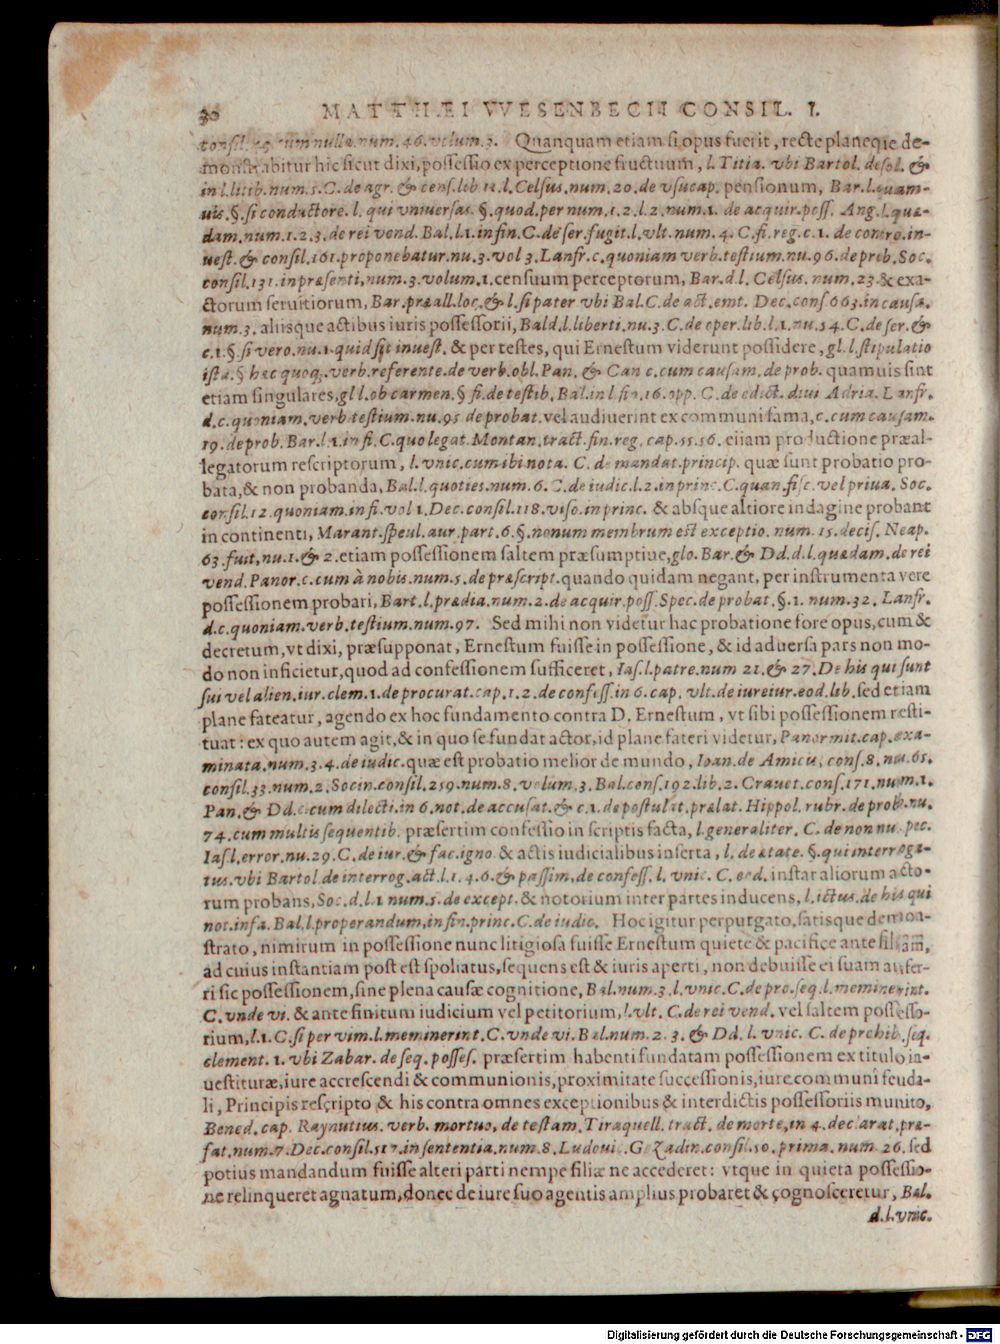 30 MATTHÆI VVESENBECII CONSIL. I.
consil. num. 46. volum. 3. Quanquam etiam si opus fuerit, recte planeque de-
monstrabitur hic sicut dixi, possessio ex perceptione fructuum, l. Titia. vbi Bartol. de sol. &
in l. litib. num. 5. C. de agr. & cens. lib. 11. l. Celsus. num. 20. de vsucap. pensionum, Bar. l. quam-
uis. §. si conductore. l. qui vniuersas. §. quod. per num. 1. 2. l. 2. num. 1. de acquir. poss. Ang. l. quæ-
dam. num. 1. 2. 3. de rei vend. Bal. l. 1. in fin. C. de ser. fugit. l. vlt. num. 4. C. fi. reg. c. 1. de contro. in-
uest. & consil. 161. proponebatur. nu. 3. vol 3. Lanfr. c. quoniam verb. testium. nu. 96. de prob. Soc.
consil. 131. in præsenti, num. 3. volum. 1. censuum perceptorum, Bar. d. l. Celsus. num. 23. & exa-
ctorum seruitiorum, Bar. præall. loc. & l. si pater vbi Bal. C. de act. emt. Dec. cons 663. in causa.
num. 3. aliisque actibus iuris possessorii, Bald. l. liberti. nu. 3. C. de oper. lib. l. 1. nu. 54. C. de ser. &
c. 1. §. si vero. nu. 1. quid sit inuest. & per testes, qui Ernestum viderunt possidere, gl. l. stipulatio
ista. § hæc quoq;. verb. referente. de verb. obl. Pan. & Can c. cum causam. de prob. quamuis sint
etiam singulares, gl l. ob carmen. § fi. de testib. Bal. in l. fin. 16. opp. C. de edict. diui Adria. Lanfr.
d. c. quoniam. verb. testium. nu. 95 de probat. vel audiuerint ex communi fama, c. cum causam.
19. de prob. Bar. l. 1. in fi. C. quo legat. Montan. tract. fin. reg. cap. 55. 56. etiam productione præal-
legatorum rescriptorum, l. vnic. cum ibi nota. C. de mandat. princip. quæ sunt probatio pro-
bata, & non probanda, Bal. l. quoties. num. 6. C. de iudic. l. 2. in princ. C. quan. fisc. vel priua. Soc.
consil. 12. quoniam. in fi. vol 1. Dec. consil. 118. viso. in princ. & absque altiore indagine probant
in continenti, Marant. speul. aur. part. 6. §. nonum membrum est exceptio. num. 15. decis. Neap.
63. fuit, nu. 1. & 2. etiam possessionem saltem præsumptiue, glo. Bar. & Dd. d. l. quædam. de rei
vend. Panor. c. cum à nobis. num. 5. de præscript. quando quidam negant, per instrumenta vere
possessionem probari, Bart. l. prædia. num. 2. de acquir. poss. Spec. de probat. §. 1. num. 32. Lanfr.
d. c. quoniam. verb. testium. num. 97. Sed mihi non videtur hac probatione fore opus, cum &
decretum, vt dixi, præsupponat, Ernestum fuisse in possessione, & id aduersa pars non mo-
do non inficietur, quod ad confessionem sufficeret, Ias. l. patre. num 21. & 27. De his qui sunt
sui vel alien. iur. clem. 1. de procurat. cap. 1. 2. de confess. in 6. cap. vlt. de iureiur. eod. lib. sed etiam
plane fateatur, agendo ex hoc fundamento contra D. Ernestum, vt sibi possessionem resti-
tuat: ex quo autem agit, & in quo se fundat actor, id plane fateri videtur, Panormit. cap. exa-
minata. num. 3. 4. de iudic. quæ est probatio melior de mundo, Ioan. de Amicis, cons. 8. nu. 65.
consil. 33. num. 2. Socin. consil. 259. num. 8. volum. 3. Bal. cons. 192. lib. 2. Crauet. cons. 171. num. 1.
Pan. & Dd. c. cum dilecti. in 6. not. de accusat. & c. 1. de postulat. prælat. Hippol. rubr. de prob. nu.
74. cum multis sequentib. præsertim confessio in scriptis facta, l. generaliter. C. de non nu. pec.
Ias. l. error. nu. 29. C. de iur. & fac. igno & actis iudicialibus inserta, l. de ætate. §. qui interroga-
tus. vbi Bartol de interrog. act. l. 1. 4. 6. & passim, de confess. l. vnic. C. eod. instar aliorum acto-
rum probans, Soc. d. l. 1 num. 5. de except. & notorium inter partes inducens, l. ictus. de his qui
not. infa. Bal. l. properandum, in fin. princ. C. de iudic. Hoc igitur perpurgato, satisque demon-
strato, nimirum in possessione nunc litigiosa fuisse Ernestum quiete & pacifice ante filiam,
ad cuius instantiam post est spoliatus, sequens est & iuris aperti, non debuisse ei suam aufer-
ri sic possessionem, sine plena causæ cognitione, Bal. num. 3. l. vnic. C. de pro. seq. l. meminerint.
C. vnde vi. & ante finitum iudicium vel petitorium, l. vlt. C. de rei vend. vel saltem possesso-
rium, l. 1. C. si per vim. l. meminerint. C. vnde vi. Bal. num. 2. 3. & Dd. l. vnic. C. de prohib. seq.
clement. 1. vbi Zabar. de seq. posses. præsertim habenti fundatam possessionem ex titulo in-
uestituræ, iure accrescendi & communionis, proximitate successionis, iure communi feuda-
li, Principis rescripto & his contra omnes exceptionibus & interdictis possessoriis munito,
Bened. cap. Raynutius. verb. mortuo, de testam. Tiraquell. tract. de morte, in 4. declarat. præ-
fat. num. 7. Dec. consil. 517. in sententia. num. 8. Ludoui. Gozadin. consil. 50. prima. num 26. sed
potius mandandum fuisse alteri parti nempe filiæ ne accederet: vtque in quieta possessio-
ne relinqueret agnatum, donec de iure suo agentis amplius probaret & cognosceretur, Bal.
d. l. vnic.
Digitalisierung gefördert durch die Deutsche Forschungsgemeinschaft - DFG